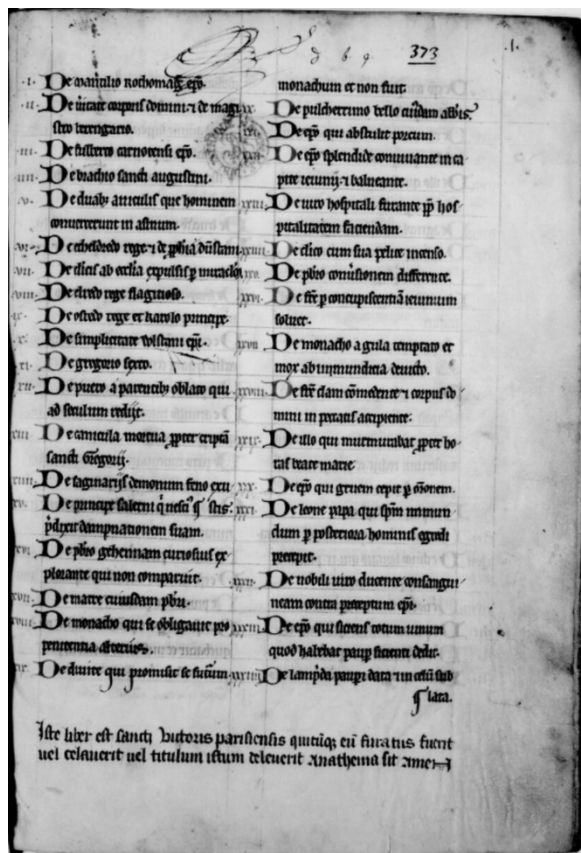 373
.I.
.i. De maurilio Rothomag. ep̄o.
.ii. De ūitate corporis domini ⁊ de magi
stro berengario.
.iii. De fulberto carnotensi ep̄o.
.iiii. De brachio sancti augustini.
.v. De duab; aniculis que hominem
conuerterunt in asinum.
.vi. De etheldredo rege ⁊ de ꝓph̄ia dunstani
.vii. De clicis ab ecclia expulsis ꝑ miraclm
.viii. De rege flagitioso.
.ix. De rege et harolo principe.
.x. De simplicitate Wlstani ep̄i.
.xi. De gregorio sexto.
.xii. De puero a parentib; oblato qui
ad seculum rediit.
.xiii. De canicula mortua ꝓpter criptā
sancti Gregorij.
.xiiii. De saginarijs demonum feno
.xv. De principe salerni
p̄dixit dampnationem suam.
.xvi. De pb̄ro gehennam curiosius ex
plorante qui non comparuit.
.xvii. De matre cuiusdam pb̄ri.
.xviii. De monacho qui se obligauit pro
penitentia
.xix. De diuite qui promisit se futurum
monachum et non fuit.
.xx. De pulcherrimo bello abbīs.
.xxi. De ep̄o qui abstulit porcum.
.xxii. De ep̄o splendide conuiuante in ca
pite ieiunij ⁊ balneante.
.xxiii. De uico hospitali furante ꝓp̄ hos
pitalitatem faciendam.
.xxiiii. De clico cum sua pelice incenso.
.xxv. De pb̄ro conūsionem differente.
.xxvi. De fr̄e ꝑ concupiscentiā ieiunium
soluente.
.xxvii. De monacho a gula temptato et
mox ab inmundicia deuicto.
.xxviii. De fr̄e clam cōmedente ⁊ corpus do
mini in peccatis accipiente.
.xxix. De illo qui murmurabat ꝓpter ho
ras beate marie
.xxx. De ep̄o qui gruem cepit ꝑ ōronem.
.xxxi. De leone papa qui sp̄m inmun
dum ꝑ posteriora hominis egredi
precepit.
.xxxii. De nobili uiro ducente consangui
neam contra preceptum ep̄i.
.xxxiii. De ep̄o qui siciens totum uinum
quod habebat paup̄i sicienti dedit.
.xxxiiij. De lampade paup̄i data ⁊ in celū sub
lata.
Iste liber est sancti Victoris parisiensis quicūq; eū furatus fuerit
uel celauerit uel titulum istum deleuerit Anathema sit Amen